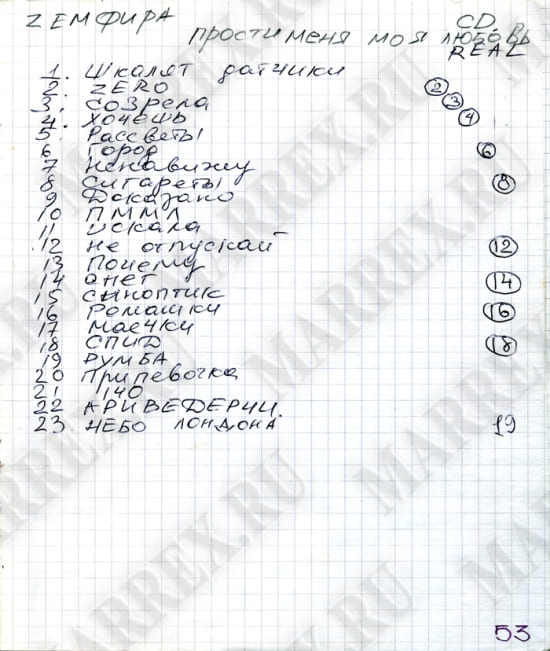 ZЕМФИРА CD
прости меня моя любовь
REAL
1. Шкалят датчики
2. ZERO ②
3. созрела ③
4. хочешь ④
5. Рассветы
6 город ⑥
7 Ненавижу
8 Сигареты ⑧
9 Доказано
10 ПММЛ
11 искала
12 не отпускай ⑫
13 Почему
14 анет ⑭
15 синоптик
16 Ромашки ⑯
17 маечки
18 СПИД ⑱
19 РУМБА
20 Припевочка
21 140
22 АРИВЕДЕРЧИ.
23. НЕБО ЛОНДОНА 19
53
MARREX.RU